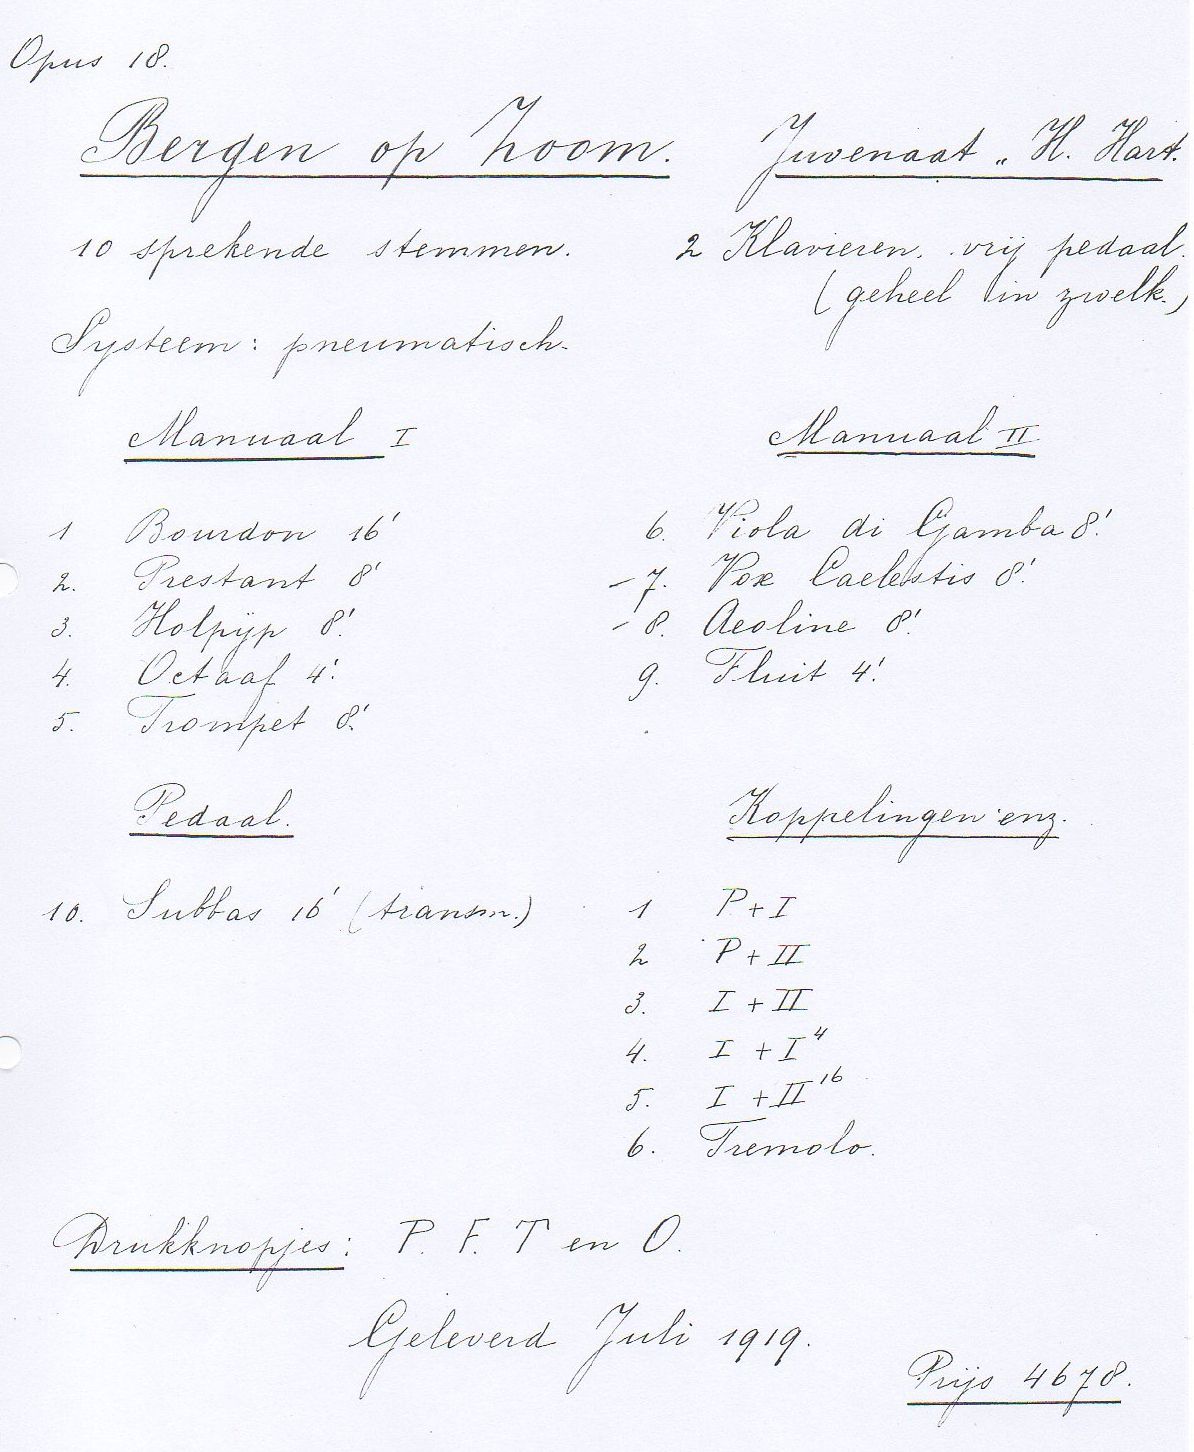 Opus 18.
Bergen op Zoom. Juvenaat „ H. Hart.
10 sprekende stemmen. 2 Klavieren. vrij pedaal.
(geheel in zwelk.)
Systeem: pneumatisch.
Manuaal I
1 Bourdon 16'
2. Prestant 8'
3. Holpijp 8'.
4. Octaaf 4'.
5. Trompet 8'.
Manuaal II
6. Viola di Gamba 8'.
- 7. Vox Caelestis 8'.
- 8. Aeoline 8'.
9. Fluit 4'.
Pedaal.
10. Subbas 16' (transm.)
Koppelingen enz.
1 P + I
2 P + II
3. I + II
4. I + I⁴
5. I + II¹⁶
6. Tremolo.
Drukknopjes: P. F. T en O.
Geleverd Juli 1919.
Prijs 4678.